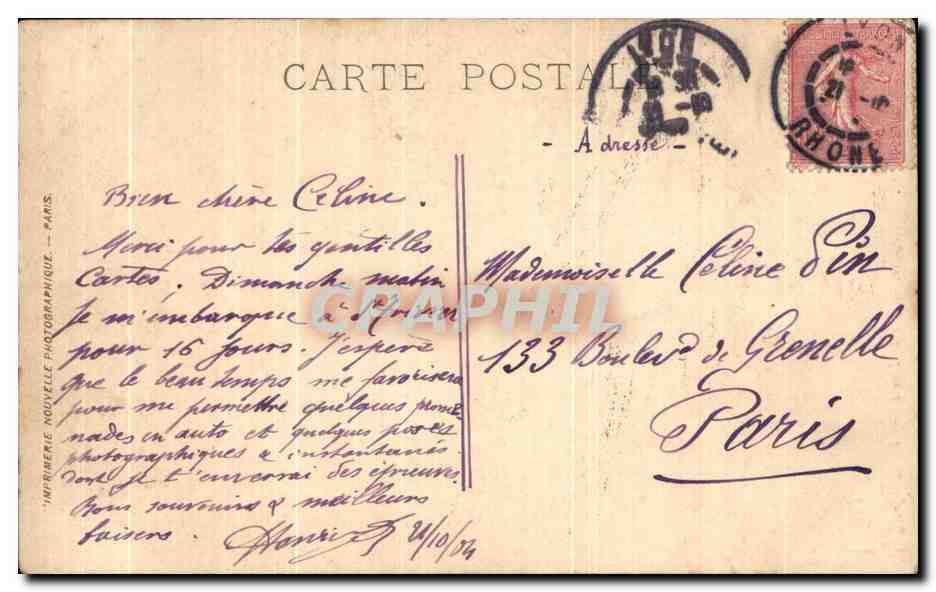 CARTE POSTALE
- Adresse -
RHONE
IMPRIMERIE NOUVELLE PHOTOGRAPHIQUE. — PARIS.
Bien chère Celine.
Merci pour tes gentilles
Cartes. Dimanche matin
Je m'embarque à St
pour 16 Jours. J'espère
que le beau temps me favorisera
pour me permettre quelques prome-
nades en auto et quelques poses
photographiques & instantanés
dont je t'enverrai des épreuves.
Bons souvenirs & meilleurs
baisers. Henri 21/10/04
Mademoiselle Céline Pin
133 Boulevd de Grenelle
Paris
CPAPHIL